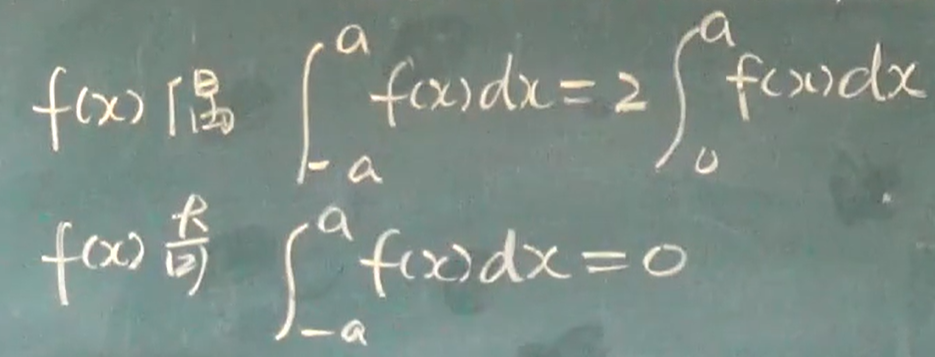 f(x)偶 ∫_{-a}^{a} f(x)dx = 2∫_{0}^{a} f(x)dx
f(x)奇 ∫_{-a}^{a} f(x)dx = 0